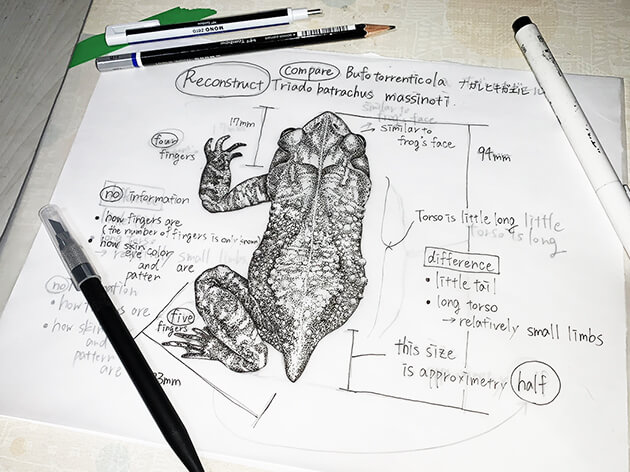 MONO zero
Tombow
Reconstruct
compare Bufo torrenticola ナガレヒキガエル
Triado batrachus massinoti.
17mm
similar to
frog's face
similar to
frog's face
94mm
four
fingers
no information
• how fingers are
(the number of fingers is only known)
• how skin color
and
pattern are
small limbs
Torso is little long
little
Torso is long
difference
• little tail
• long torso
→ relatively small limbs
no information
• how fingers are
• how skin
and
pattern
are
five
fingers
33mm
this size
is approximetry half